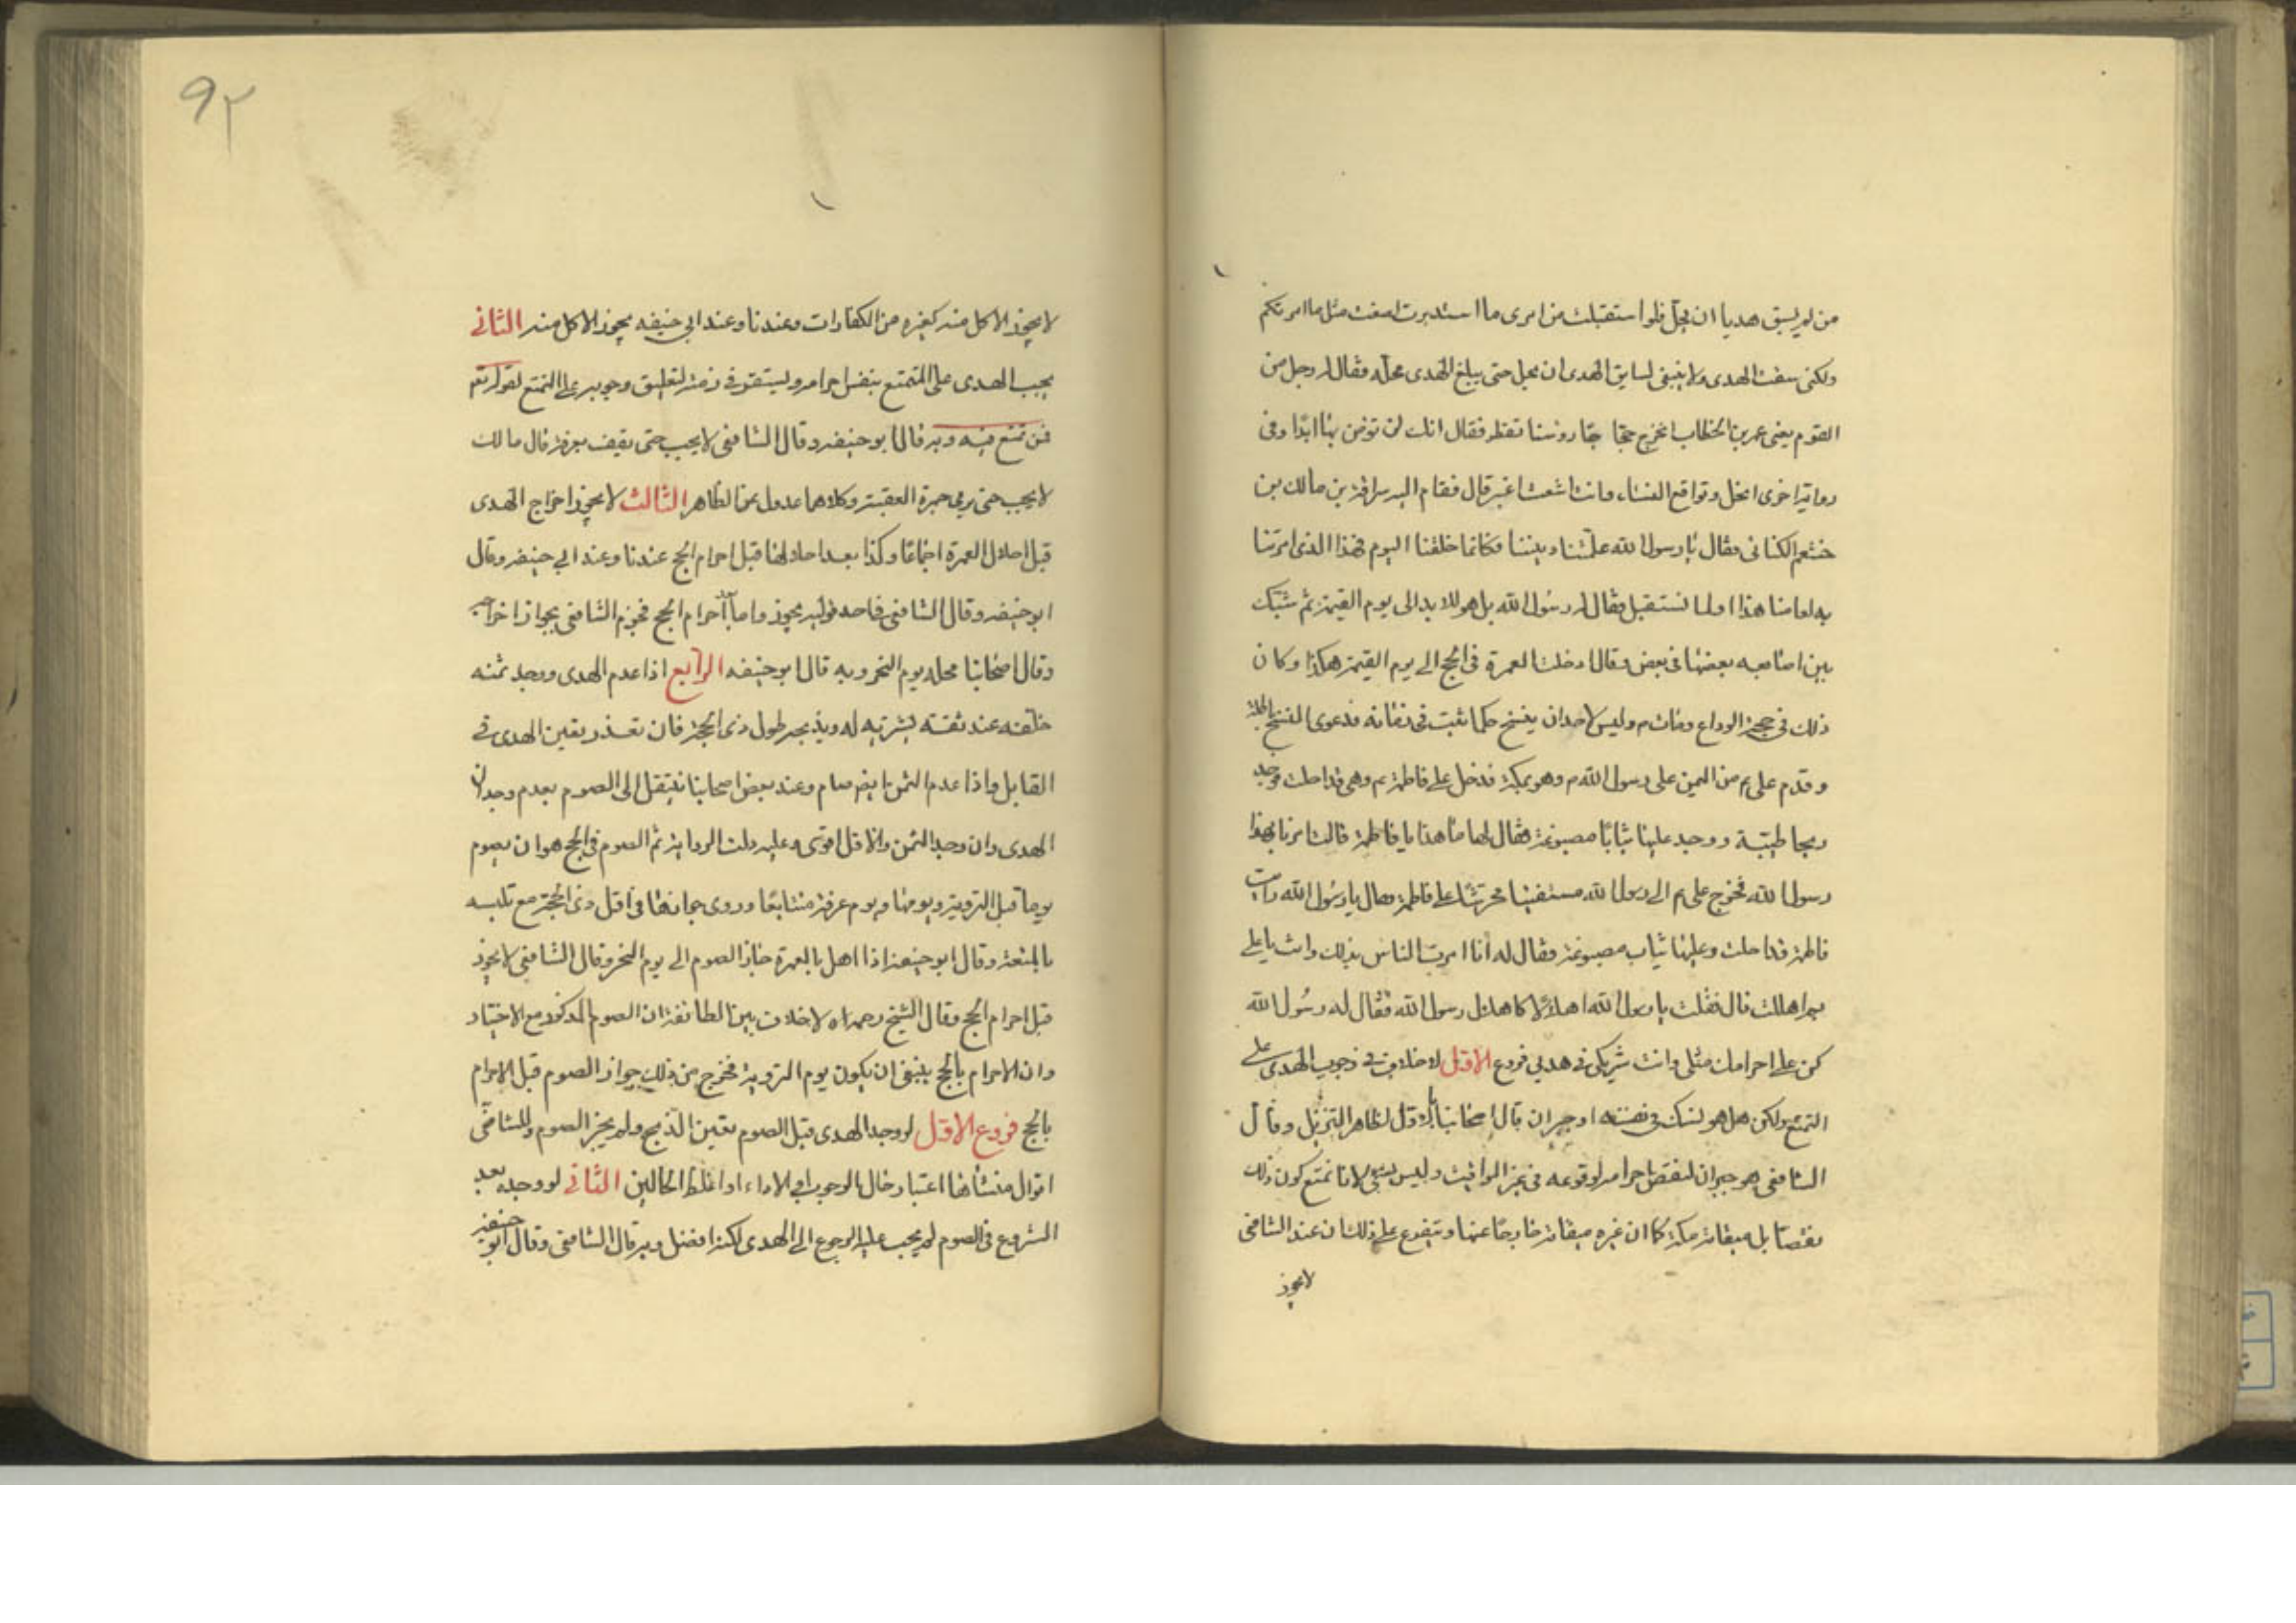 من لم يسق هديا ان يحل فلو استقبلت من امرى ما استدبرت لصنعت مثل ما امرتكم
ولكنى سقت الهدى ولا ينبغى لسايق الهدى ان يحل حتى يبلغ الهدى محله فقال له رجل من
القوم يعنى عمر بن الخطاب انخرج حجا جا رؤسنا تقطر فقال انك لن تؤمن بها ابدا وفى
رواية اخرى انحل ونواقع النساء وانت اشعث اغبر قال فقام اليه سراقة بن مالك بن
خثعم الكنانى فقال يا رسول الله علمتنا ديننا فكانما خلقنا اليوم فهذا الذى امرتنا
به لعامنا هذا او لما نستقبل فقال له رسول الله بل هو للابد الى يوم القيمة ثم شبك
بين اصابعه بعضها فى بعض وقال دخلت العمرة فى الحج الى يوم القيمة هكذا وكان
ذلك فى حجة الوداع ومات م وليس لاحد ان ينسخ حكما ثبت فى زمانه فدعوى النسخ باطلة
و قدم على م من اليمن على رسول الله م وهو بمكة فدخل على فاطمة م وهى قد احلت فوجد
ريحا طيبة ووجد عليها ثيابا مصبوغة فقال لها ما هذا يا فاطمة قالت امرنا بهذا
رسول الله فخرج على م الى رسول الله مستفتيا محرشا على فاطمة فقال يا رسول الله رايت
فاطمة قد احلت وعليها ثياب مصبوغة فقال له انا امرت الناس بذلك وانت يا على
بم اهللت قال فقلت يا رسول الله اهلالا كاهلال رسول الله فقال له رسول الله
كن على احرامك مثلى وانت شريكى فى هديى فروع الاول لا خلاف فى وجوب الهدى على
التمتع ولكن هل هو نسك فى نفسه او جبران قال اصحابنا بالاول لظاهر التنزيل وقال
الشافعى هو جبران لنقص احرامه لوقوعه فى غير المواقيت وليس بشئ لانا نمنع كون ذلك
نقصا بل ميقاته مكة كما ان غيره ميقاته خارجا عنها ويتفرع على ذلك ان عند الشافعى
لا يجوز
٩٢
لا يجوز الاكل منه كغيره من الكفارات وعندنا وعند ابى حنيفه يجوز الاكل منه الثانى
يجب الهدى على المتمتع بنفس احرامه ويستقر فى ذمته لتعليق وجوبه على التمتع لقوله تعم
فمن تمتع فيه وبه قال ابو حنيفه وقال الشافعى لا يجب حتى يقف بعرفة قال مالك
لا يجب حتى يرمى جمرة العقبة وكلاهما عدول عن الظاهر الثالث لا يجوز اخراج الهدى
قبل احلال العمرة اجماعا وكذا بعد احلالها قبل احرام الحج عندنا وعند ابى حنيفه وقال
ابو حنيفه وقال الشافعى فى احد قوليه يجوز واما بعد احرام الحج فجزم الشافعى بجواز اخراجه
وقال اصحابنا محله يوم النحر وبه قال ابو حنيفه الرابع اذا عدم الهدى ووجد ثمنه
خلفه عند ثقته يشتريه له ويذبحه طول ذى الحجة فان تعذر يقين الهدى فى
القابل واذا عدم الثمن ايضا صام وعند بعض اصحابنا ينتقل الى الصوم بعدم وجدان
الهدى وان وجد الثمن والاول اقوى وعليه دلت الرواية ثم الصوم فى الحج هو ان يصوم
يوما قبل التروية ويومها ويوم عرفة متتابعا وروى جوازها فى اول ذى الحجة مع تلبسه
بالمتعة وقال ابو حنيفة اذا اهل بالعمرة جاز الصوم الى يوم النحر وقال الشافعى لا يجوز
قبل احرام الحج وقال الشيخ رحمه الله لا خلاف بين الطائفة ان الصوم المذكور مع الاختيار
وان الاحرام بالحج ينبغى ان يكون يوم التروية فخرج من ذلك جواز الصوم قبل الاحرام
بالحج فروع الاول لو وجد الهدى قبل الصوم يقين الذبح ولم يجز الصوم وللشافعى
اقوال منشأها اعتبار حال الوجوب او الاداء او اغلظ الحالين الثانى لو وجده بعد
الشروع فى الصوم لم يجب عليه الرجوع الى الهدى لكنه افضل وبه قال الشافعى وقال ابو حنيفة